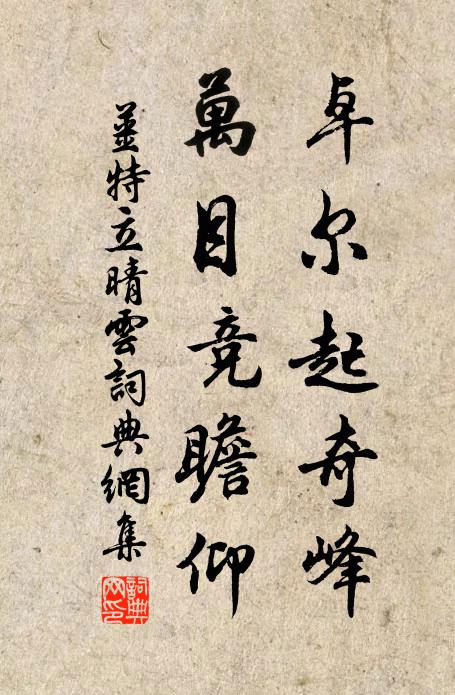 卓尔起奇峰
萬目竞瞻仰
姜特立晴雲詞典網集
詞典網印